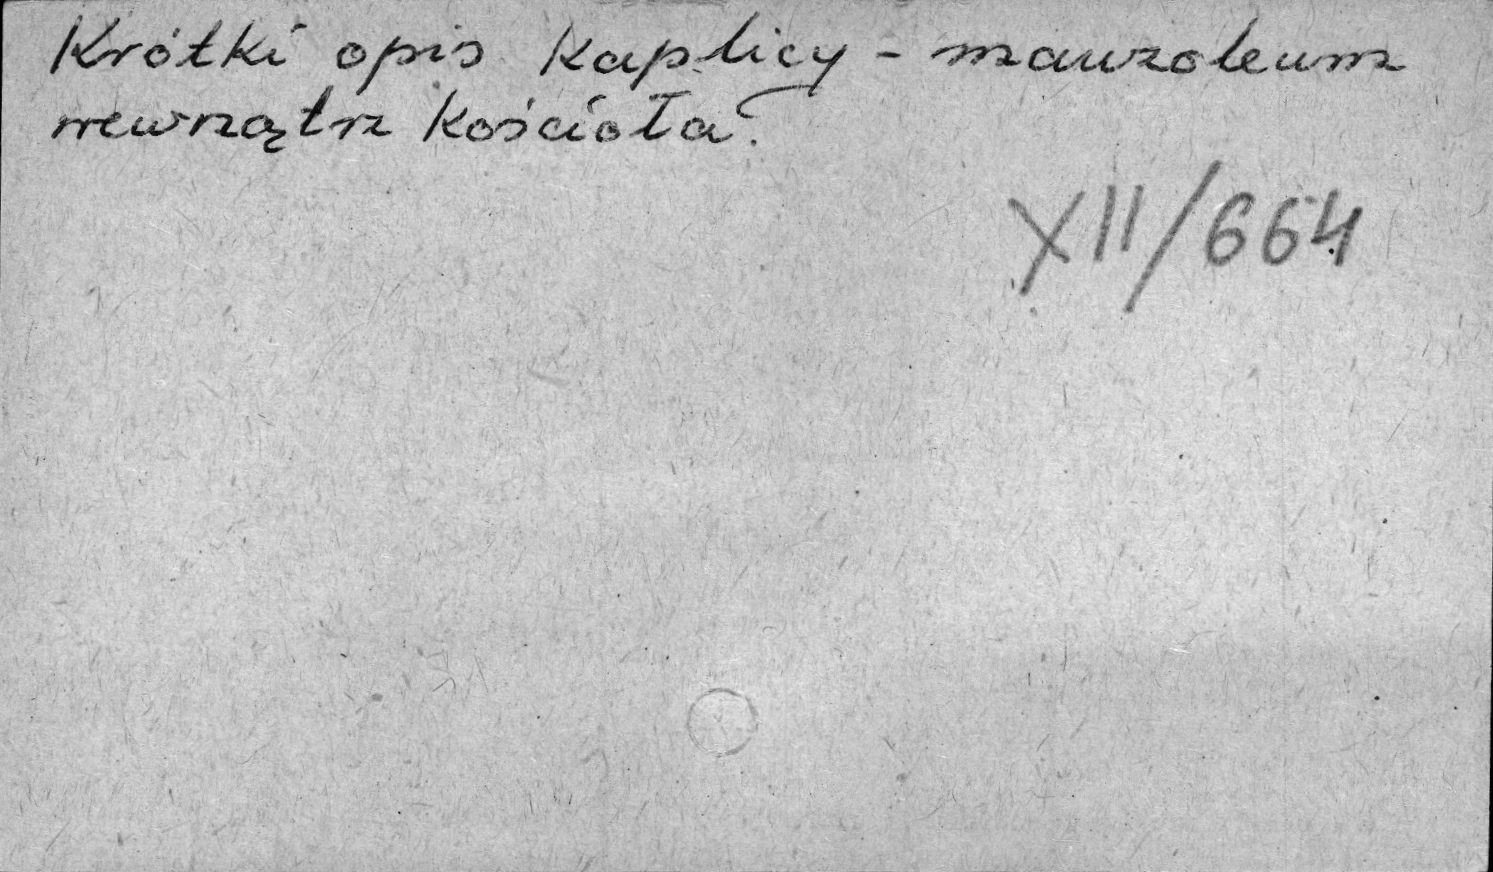 Krótki opis kaplicy - mauzoleum
wewnątrz kościoła.
XII/664